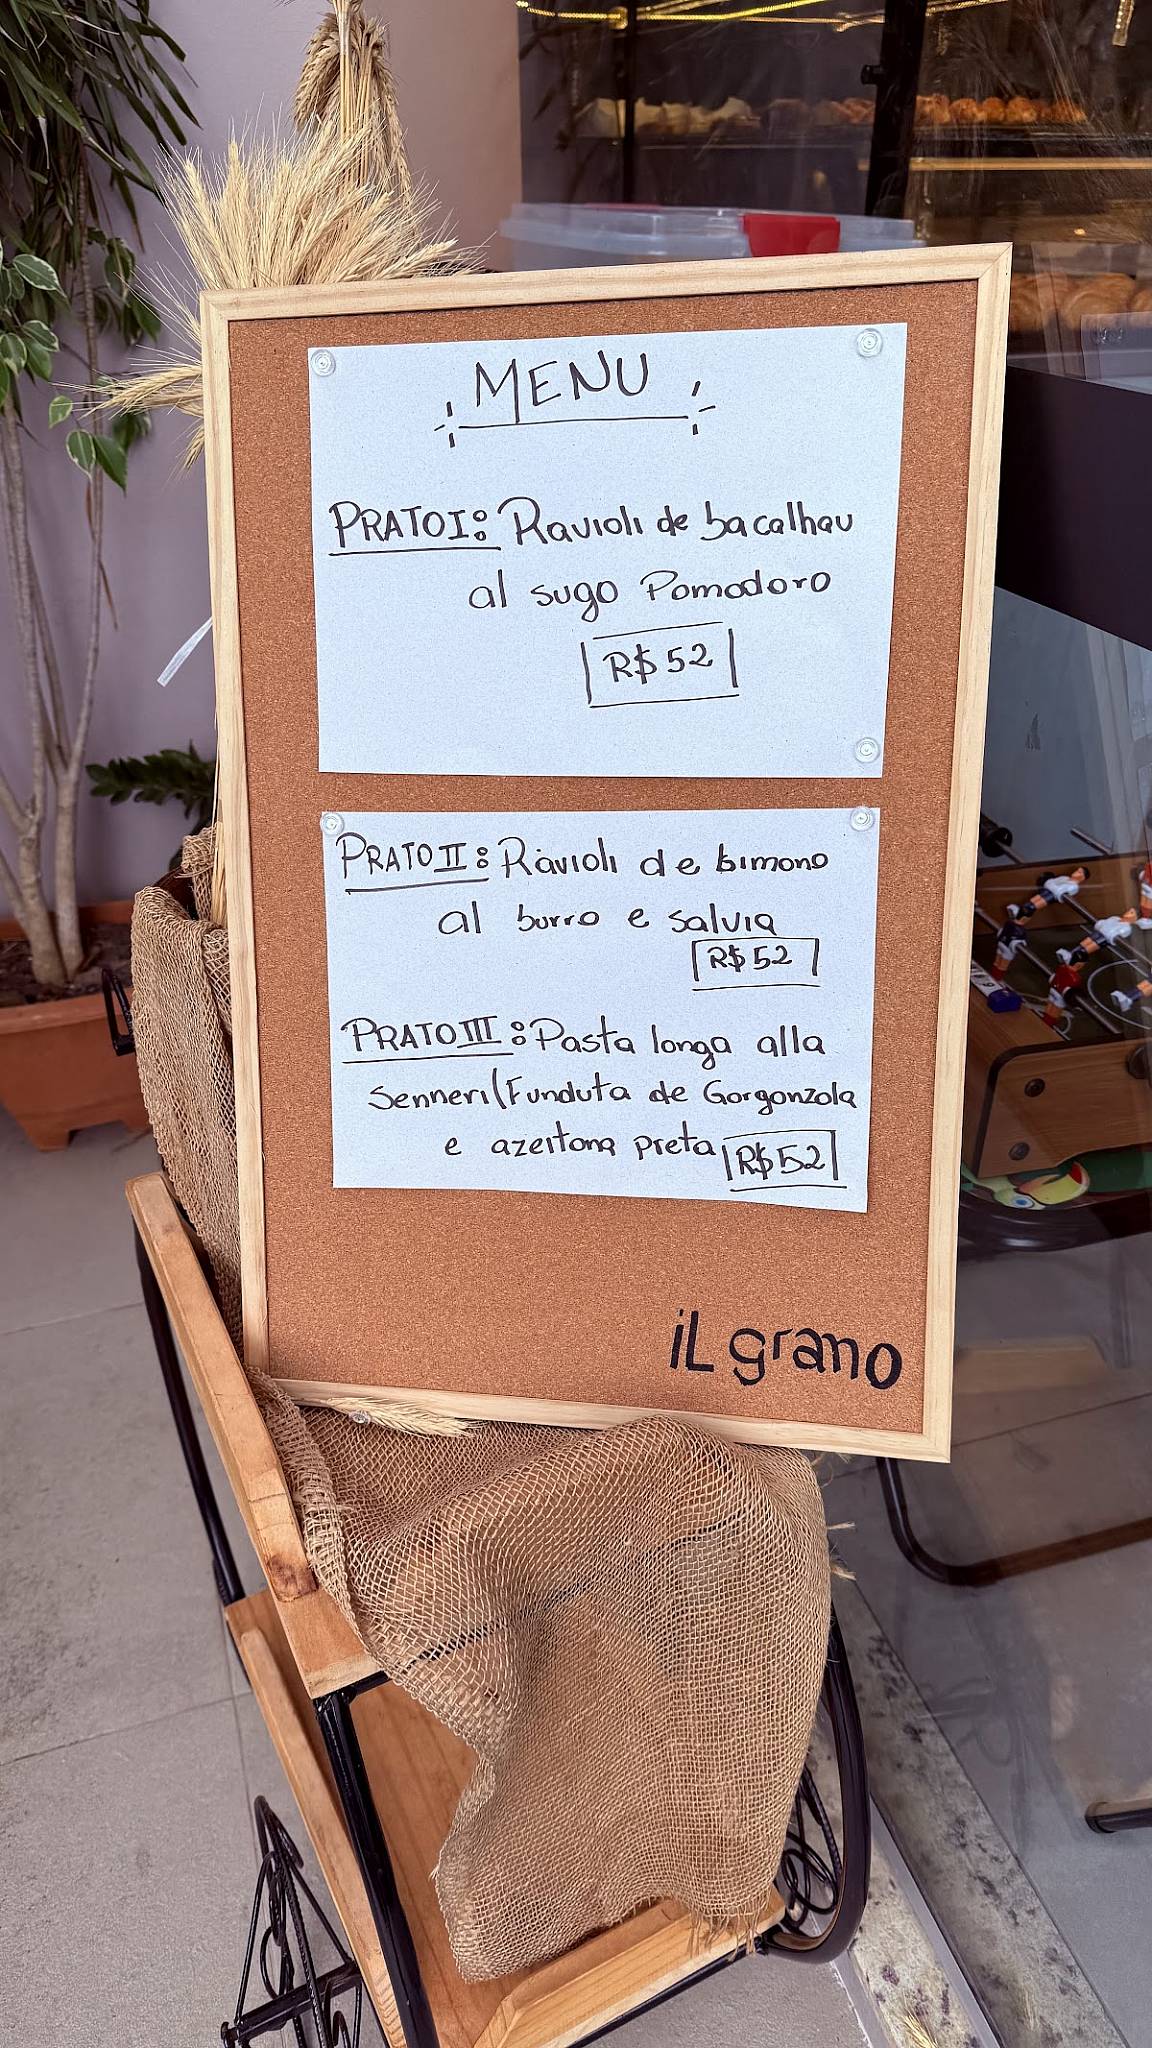 MENU
PRATO I: Ravioli de bacalhau
al sugo Pomodoro
R$52
PRATO II: Ravioli de bimono
al burro e salvia
R$52
PRATO III: Pasta longa alla
Senneri (Funduta de Gorgonzola
e azeitona preta
R$52
iL grano